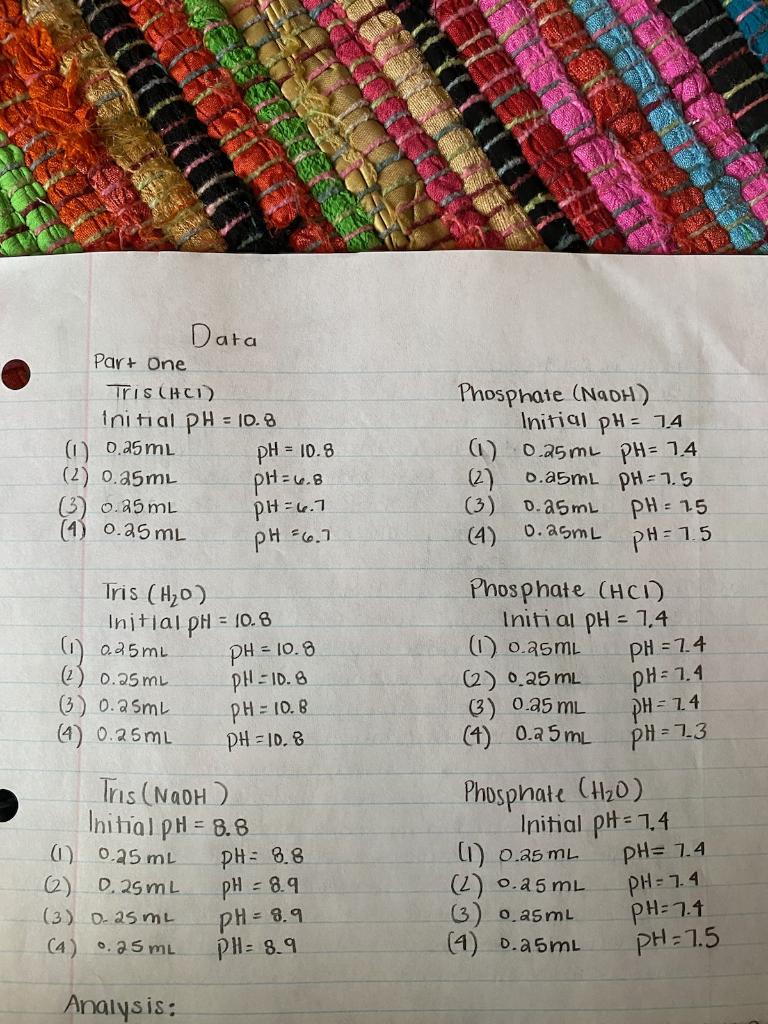 Data
Part One
Tris (HCl)
Initial pH = 10.8
(1) 0.25mL pH = 10.8
(2) 0.25mL pH = 6.8
(3) 0.25mL pH = 6.7
(4) 0.25mL pH = 6.7
Phosphate (NaOH)
Initial pH = 7.4
(1) 0.25mL pH = 7.4
(2) 0.25mL pH = 7.5
(3) 0.25mL pH = 7.5
(4) 0.25mL pH = 7.5
Tris (H₂O)
Initial pH = 10.8
(1) 0.25mL pH = 10.8
(2) 0.25mL pH = 10.8
(3) 0.25mL pH = 10.8
(4) 0.25mL pH = 10.8
Phosphate (HCl)
Initial pH = 7.4
(1) 0.25mL pH = 7.4
(2) 0.25mL pH = 7.4
(3) 0.25mL pH = 7.4
(4) 0.25mL pH = 7.3
Tris (NaOH)
Initial pH = 8.8
(1) 0.25mL pH = 8.8
(2) 0.25mL pH = 8.9
(3) 0.25mL pH = 8.9
(4) 0.25mL pH = 8.9
Phosphate (H₂O)
Initial pH = 7.4
(1) 0.25mL pH = 7.4
(2) 0.25mL pH = 7.4
(3) 0.25mL pH = 7.4
(4) 0.25mL pH = 7.5
Analysis: